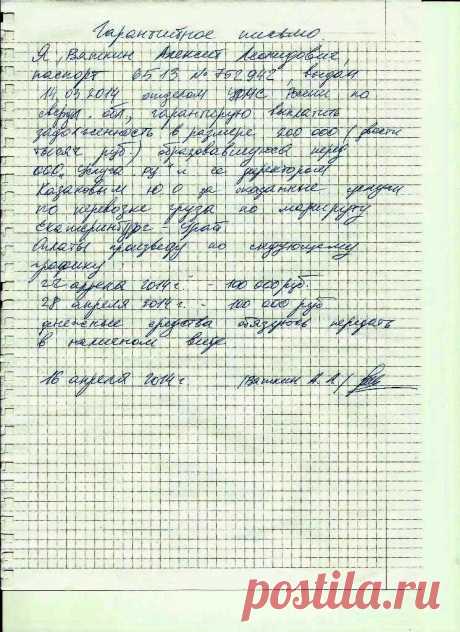 Гарантийное письмо
Я, Вяткин Алексей Леонидович,
паспорт 6513 № 752942, выдан
14.03.2014 отделом УФМС России по
Сверд. обл, гарантирую выплатить
задолженность в размере 200 000 (двести
тысяч руб) образовавшуюся перед
ООО "Услуга.ру" и ее директором
Казановым Ю О за оказанные услуги
по перевозке груза по маршруту
Екатеринбург -
Оплаты произведу по следующему
графику
22 апреля 2014 г. - 100 000 руб.
28 апреля 2014 г. - 100 000 руб
денежные средства обязуюсь передать
в наличном виде
16 апреля 2014 г /Вяткин А. Л/
postila.ru